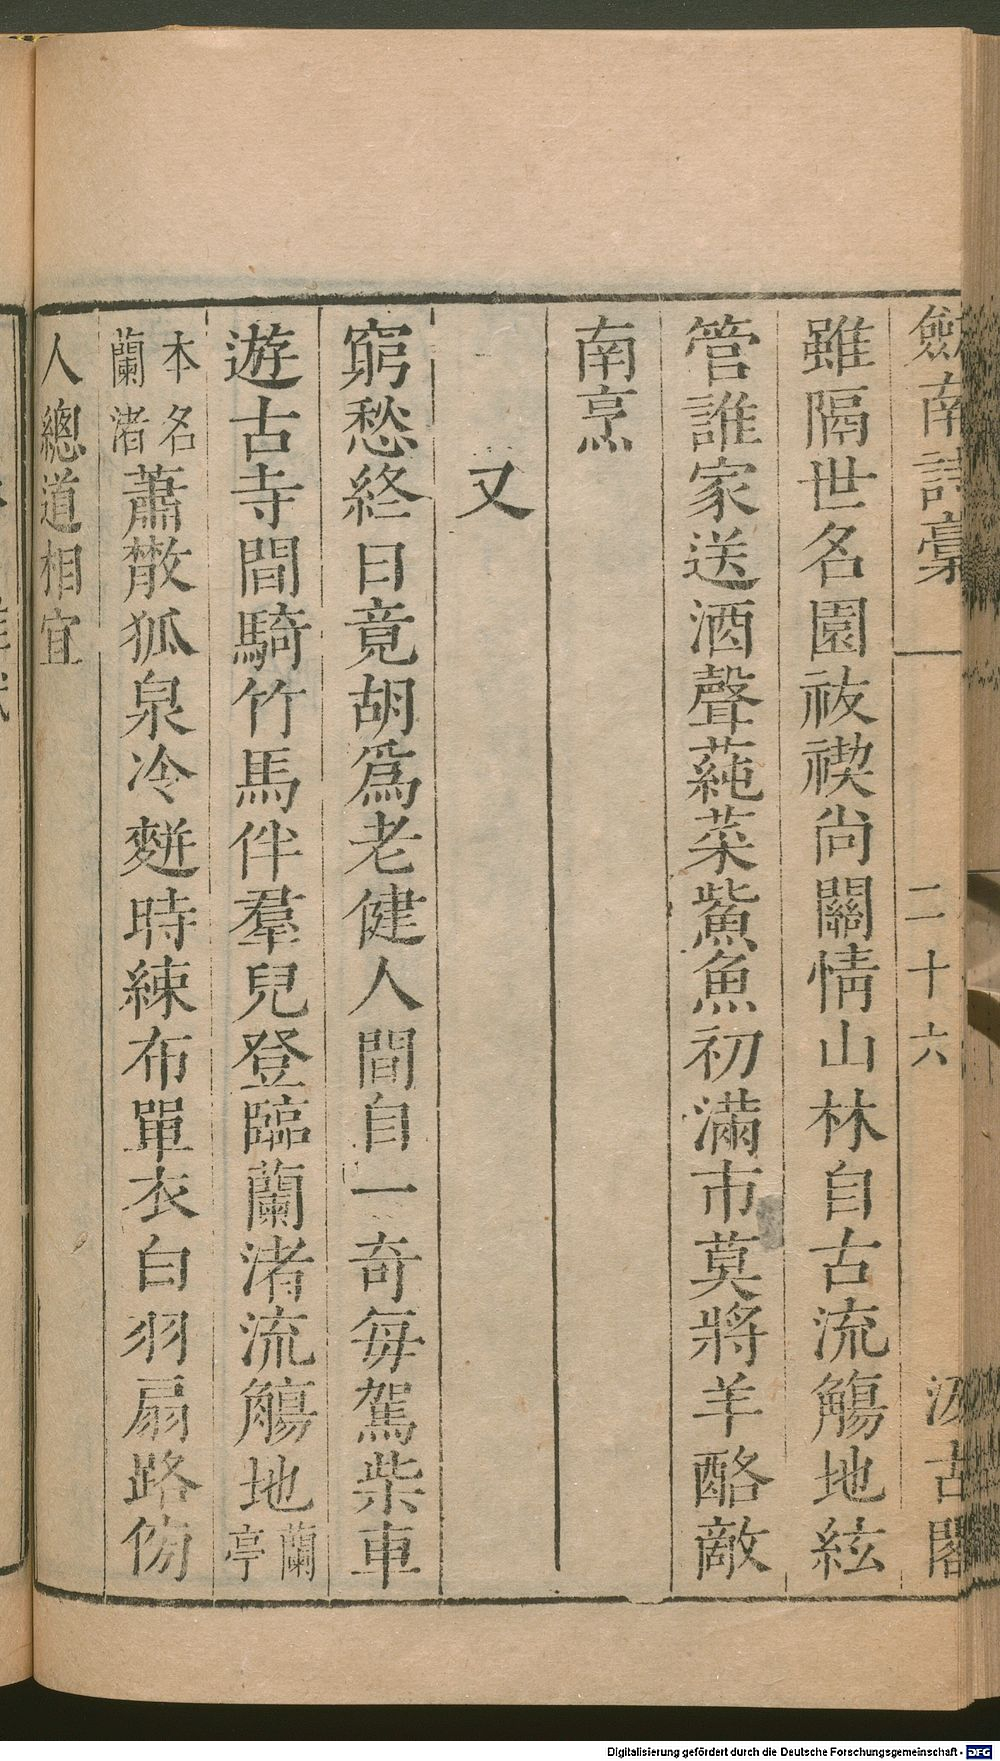 劍南詩稾 二十六 汲古閣
雖隔世名園祓禊尙關情山林自古流觴地絃
管誰家送酒聲蒓菜鮆魚初滿市莫將羊酪敵
南烹
又
窮愁終日竟胡爲老健人間自一奇每駕柴車
遊古寺間騎竹馬伴羣兒登臨蘭渚流觴地蘭亭
本名蘭渚蕭散狐泉冷麪時練布單衣白羽扇路傍
人總道相宜
Digitalisierung gefördert durch die Deutsche Forschungsgemeinschaft - DFG